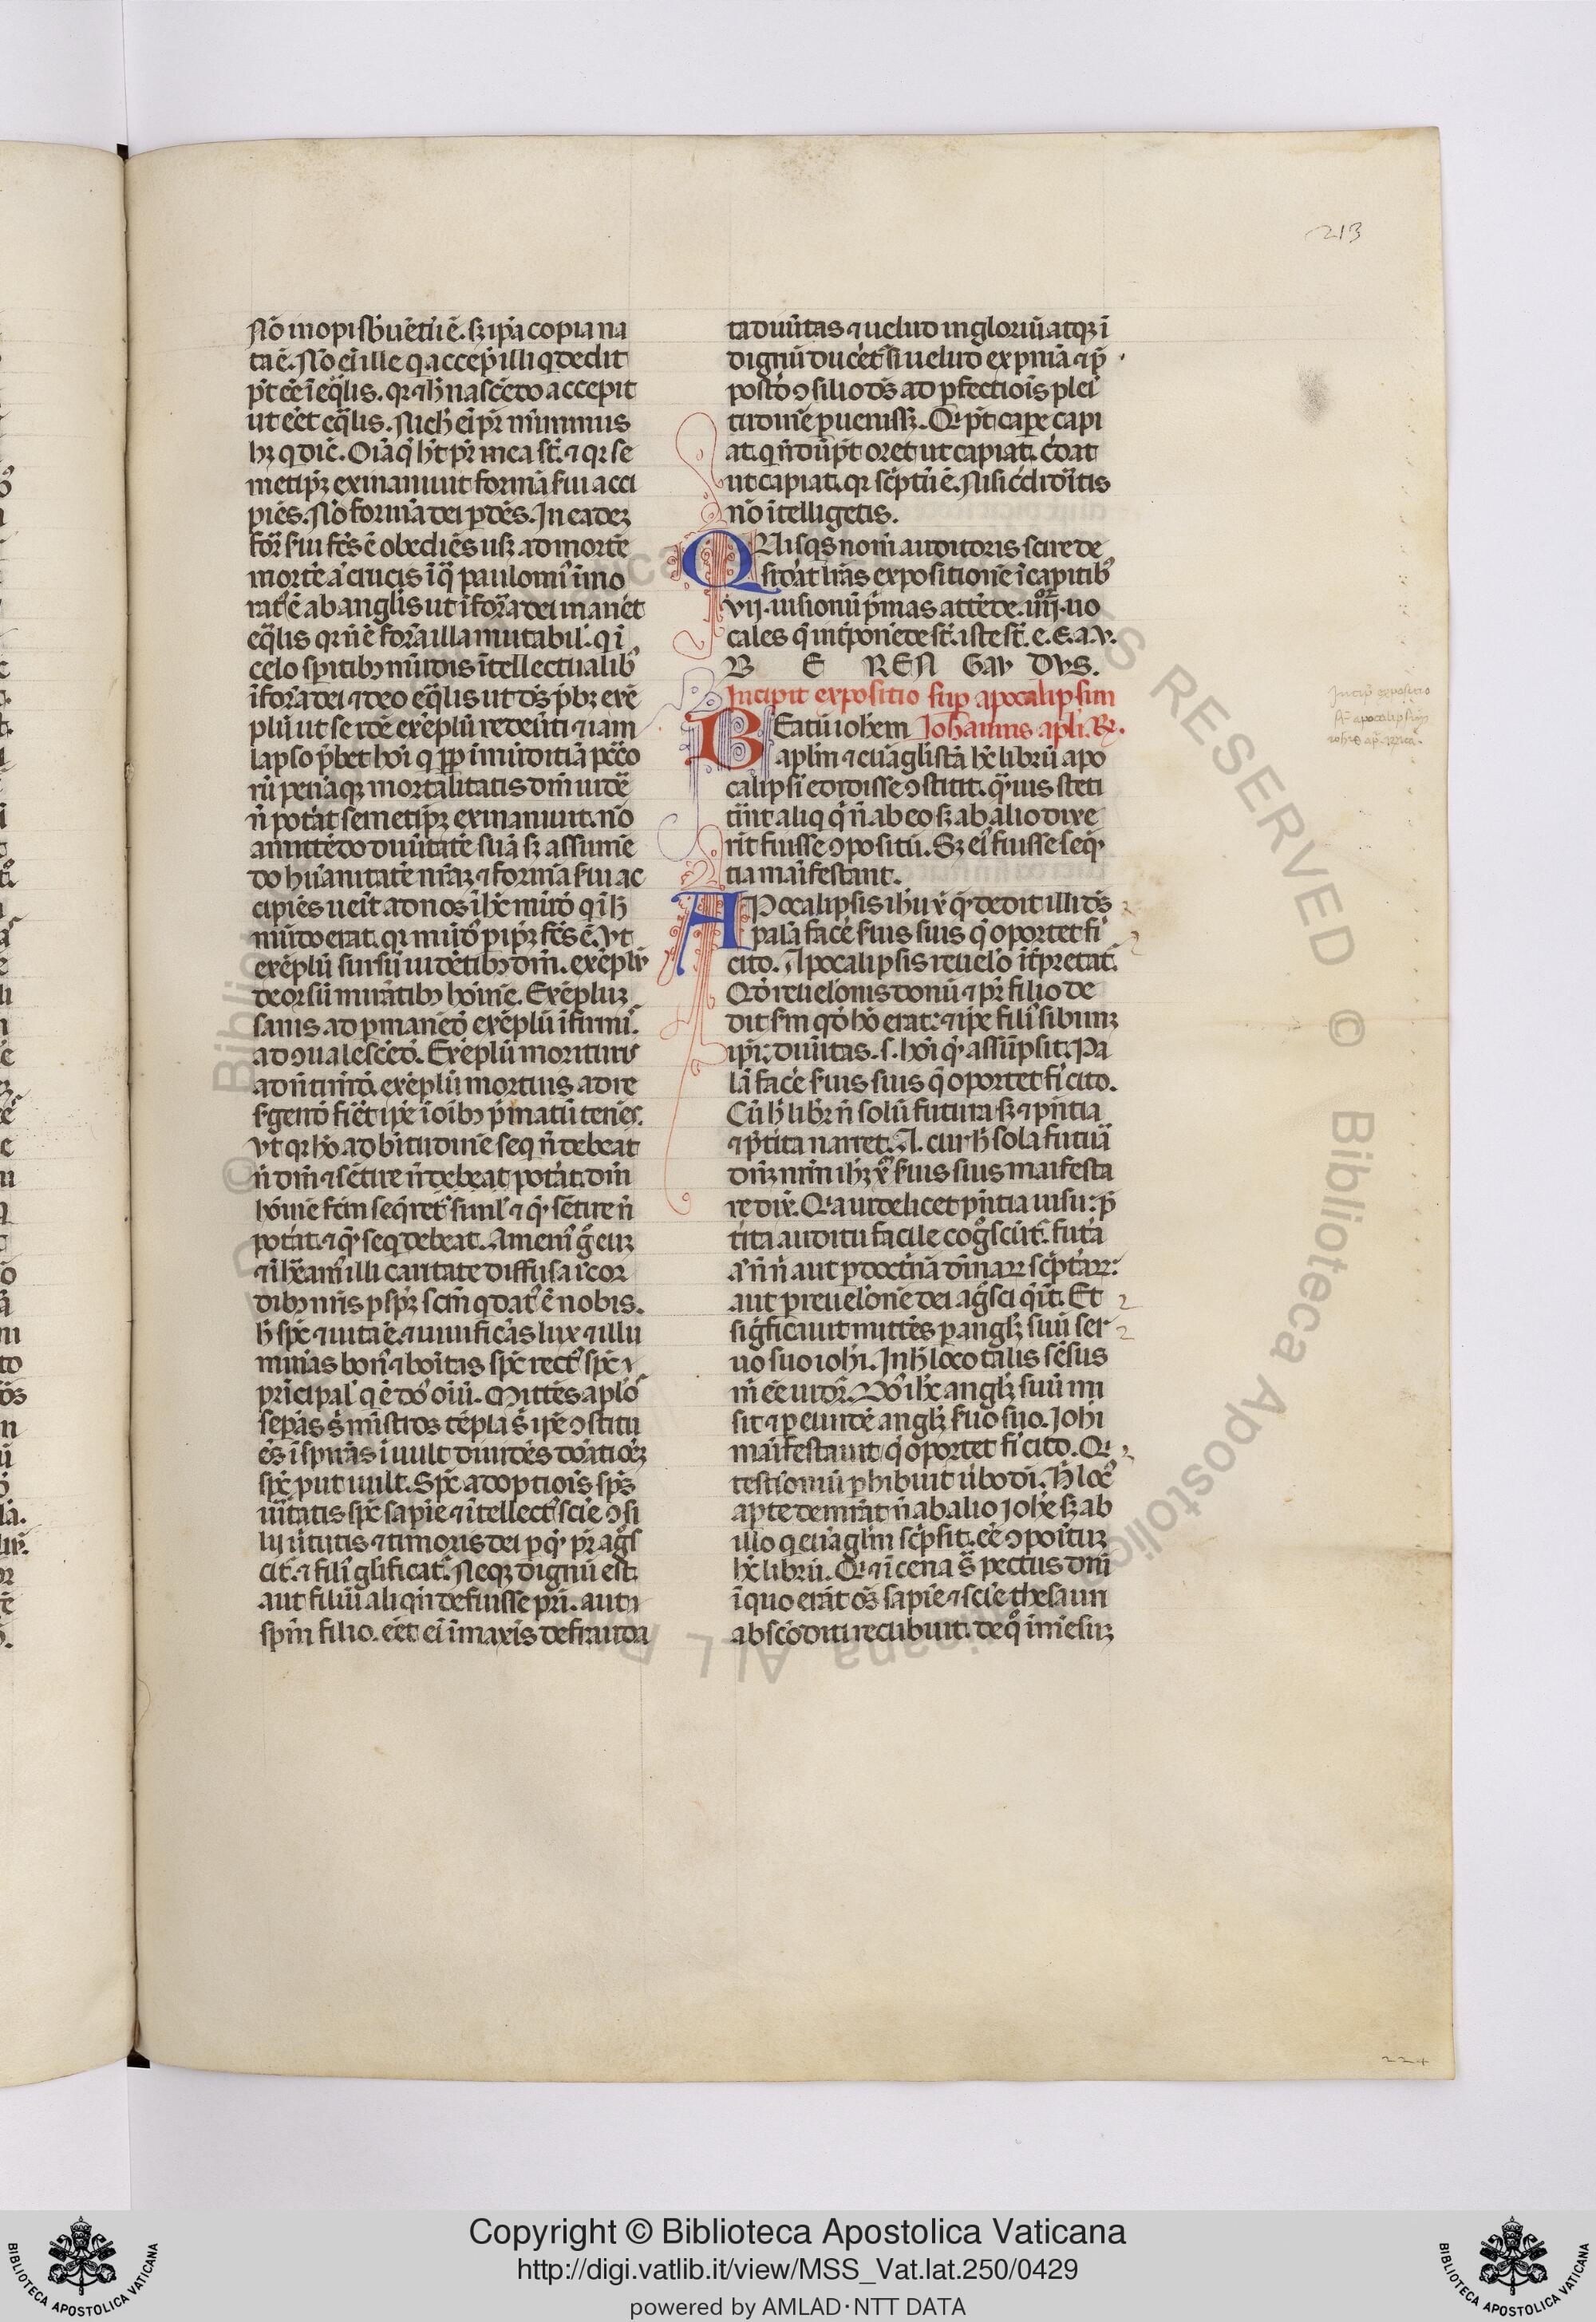 213
Nō inopi sbuētū ē. sꝫ ip̄a copia na
ta ē. Nō eī ille q accep̄ illi q dedit
pt̄ ēē īeq̄lis. qꝛ ⁊ h̄ nascēdo accepit
ut eēt eq̄lis. Nich̓ eī pr̄ minimus
hꝫ q dic̄. Oīa q̄ ht̄ pr̄ mea st̄. ⁊ qꝛ se
metip̄ꝫ exinaniuit formā s̓ui acci
piēs. Nō formā dei ꝑdēs. In eadeꝫ
for̄ s̓ui fc̄s ē obediēs usꝫ ad mortē
mortē aͫ crucis ī q̄ paulomī mīo
rat᷒ ē ab angl̄is ut ī for̄a dei manēt
eq̄lis qꝛ n̄ ē for̄a illa mutabil̓. q ī
celo sp̄itibꝫ mūdis ītellectualibꝫ
ī for̄a dei ⁊ deo eq̄lis ut d̄s p̄bꝫ exē
plū ut se idē exēplū redeūti ⁊ iam
lapso p̄bet hōi q ꝓp̄ īmūditiā pccō
rū penāqꝫ mortalitatis dm̄ uidē
n̄ potāt semetip̄ꝫ exinaniuit. nō
amittēdo diuītatē suā sꝫ assumē
do hūanitatē nr̄aꝫ ⁊ formā s̓ui ac
cipiēs uēit ad nos ī hc̄ mūdō q ī h̄
mūdo erat. qꝛ mūdō ꝑ ip̄ꝫ fc̄s ē. Vt
exēplū sursū uidētibꝫ dm̄. exēplū
deorsū mirātibꝫ hōinē. Exēpluꝫ
sanis ad ꝑmanēdō exēplū īfirmī.
ad ꝯualescēdō. Exēplū morituris
ad n̄ timēdō. exēplū mortuis ad re
s̓gendō fiēt ip̄e ī oībꝫ p̄matū tenēs.
Vt qꝛ hō ad bt̄itudinē seq n̄ debeat
n̄ dm̄ ⁊ sētire n̄ debeat potāt. dm̄
hōinē fc̄m seq̄ret᷒ siml̓ ⁊ q̄ sētire n̄
potāt. ⁊ q̄ seq debeat. Amem᷒ g̊ euꝫ
⁊ īhēam᷒ illi caritate diffusa ī cor
dibꝫ nr̄is ꝑ sp̄ꝫ scm̄ q dat᷒ ē nobis.
h̄ sp̄c ⁊ uita ē. ⁊ uiuificās lux ⁊ illu
minās bon᷒ ⁊ bōitas sp̄c rect᷒ sp̄c ⁊
prīcipal̓ q ē dō oīū. Mittēs apl̄o
sepās s̄ mīstros tēpla s̄ ip̄e ꝯstitu
ēs ī spirās ī uult diuidēs dōatiōꝫ
sp̄c ꝓut uult. Sp̄c adoptiōis sp̄s
ūitatis sp̄c sapiē ⁊ ītellect᷒ scīe ꝯsi
lij ūtutis ⁊ timoris dei ꝑ q̄ pr̄ ag̊s
cit᷒. ⁊ fili᷒ gl̄ificat᷒. Neqꝫ dignū est
aut filiū aliqn̄ defuisse pr̄i. aut
sp̄m filio. eēt eī ī maxīs defrauda
ta diuītas ⁊ uelud ingloriū atqꝫ ī
dignū ducēt᷒ si uelud ex pniā ⁊ p̄
postō ꝯsilio d̄s ad ꝑfectiōis plei
tudinē ꝑuenissꝫ. Qꝛ pt̄ capē capi
at. q n̄dū pt̄ oret ut capiat. c̓dat
ut capiat. qꝛ sc̓ptū ē. Nisi c̓did̓itis
nō ītelligetis.
QUisqꝫ nom̄ auditoris scire de
sid̓at līas expositionē ī capitibꝫ
vij. uisionū p̄mas attēde. iiij. uo
cales q̄ int̓ponēde st̄. iste st̄. e. e. a. v.
B E REN GAV DVS.
Incipit expositio sup̄ apocalipsim
BEatū iohem Johannis apli. Rx.
aplm̄ ⁊ euāglistā hc̄ librū apo
calipsī edidisse ꝯstitit. q̄uis steti
tīint aliq q̄ n̄ ab eo sꝫ ab alio dixe
rīt fuisse ꝯpositū. Sꝫ ei᷒ fuisse seq̄
tia maīfestant.
APocalipsis ihu x̄ q̄ dedit illi d̄s
palā facē s̓uis suis q̄ oportet fi
cito. Apocalipsis reuelō īt̓pretat᷒.
Qd̄ reuelōnis donū ⁊ pr̄ filio de
dit sm̄ qd̄ hō erat: ⁊ ip̄e fili᷒ sibimꝫ
ip̄i: diuītas. s. hōi q̄ assūpsit. Pa
lā facē s̓uis suis q̄ oportet fi cito.
Cū h̄ libr̄ n̄ solū futura sꝫ ⁊ pn̄tia
⁊ p̄tita narret. J. cur h̄ sola futuā
dn̄ꝫ nr̄m ihꝫ x̄ s̓uis suis maīfesta
re dix̄. Qꝛ a uidelicet pn̄tia uisu: p̄
tita auditu facile cog̊scūt᷒. futa
aͫ n̄ n̄ aut ꝑ doctnā dīnaꝝ sc̓ptaꝝ:
aut ꝑ reuelōnē dei ag̊sci q̄ūt. Et
sig̓ficauit mittēs ꝑ anglꝫ suū ser
uo suo iohi. In h̄ loco talis sēsus
m̄ eē uidr̄. Dō ī hc̄ anglꝫ suū mi
sit ⁊ ꝑ eūdē anglꝫ s̓uo suo. Johi
maīfestauit q̄ oportet fi cito. Qꝛ
testimoīū ꝑhibuit ūbo dī. H̄ loc᷒
apte demr̄at n̄ ab alio johe sꝫ ab
illo q euāgl̄m sc̓psit. eē ꝯpoītuꝫ
hc̄ librū. Qꝛ ⁊ ī cena s̄ pectus dn̄i
ī quo erāt oēs sapiē ⁊ sciē thesauri
absc̄oditi recubuit. de q̊ īmēsuꝫ
Incip̄ expositio
sr̄ apocalipsim
iohis ap̄.
224
Copyright © Biblioteca Apostolica Vaticana
http://digi.vatlib.it/view/MSS_Vat.lat.250/0429
powered by AMLAD·NTT DATA
BIBLIOTECA APOSTOLICA VATICANA
BIBLIOTECA APOSTOLICA VATICANA
© Biblioteca Apostolica Vaticana ALL RIGHTS RESERVED